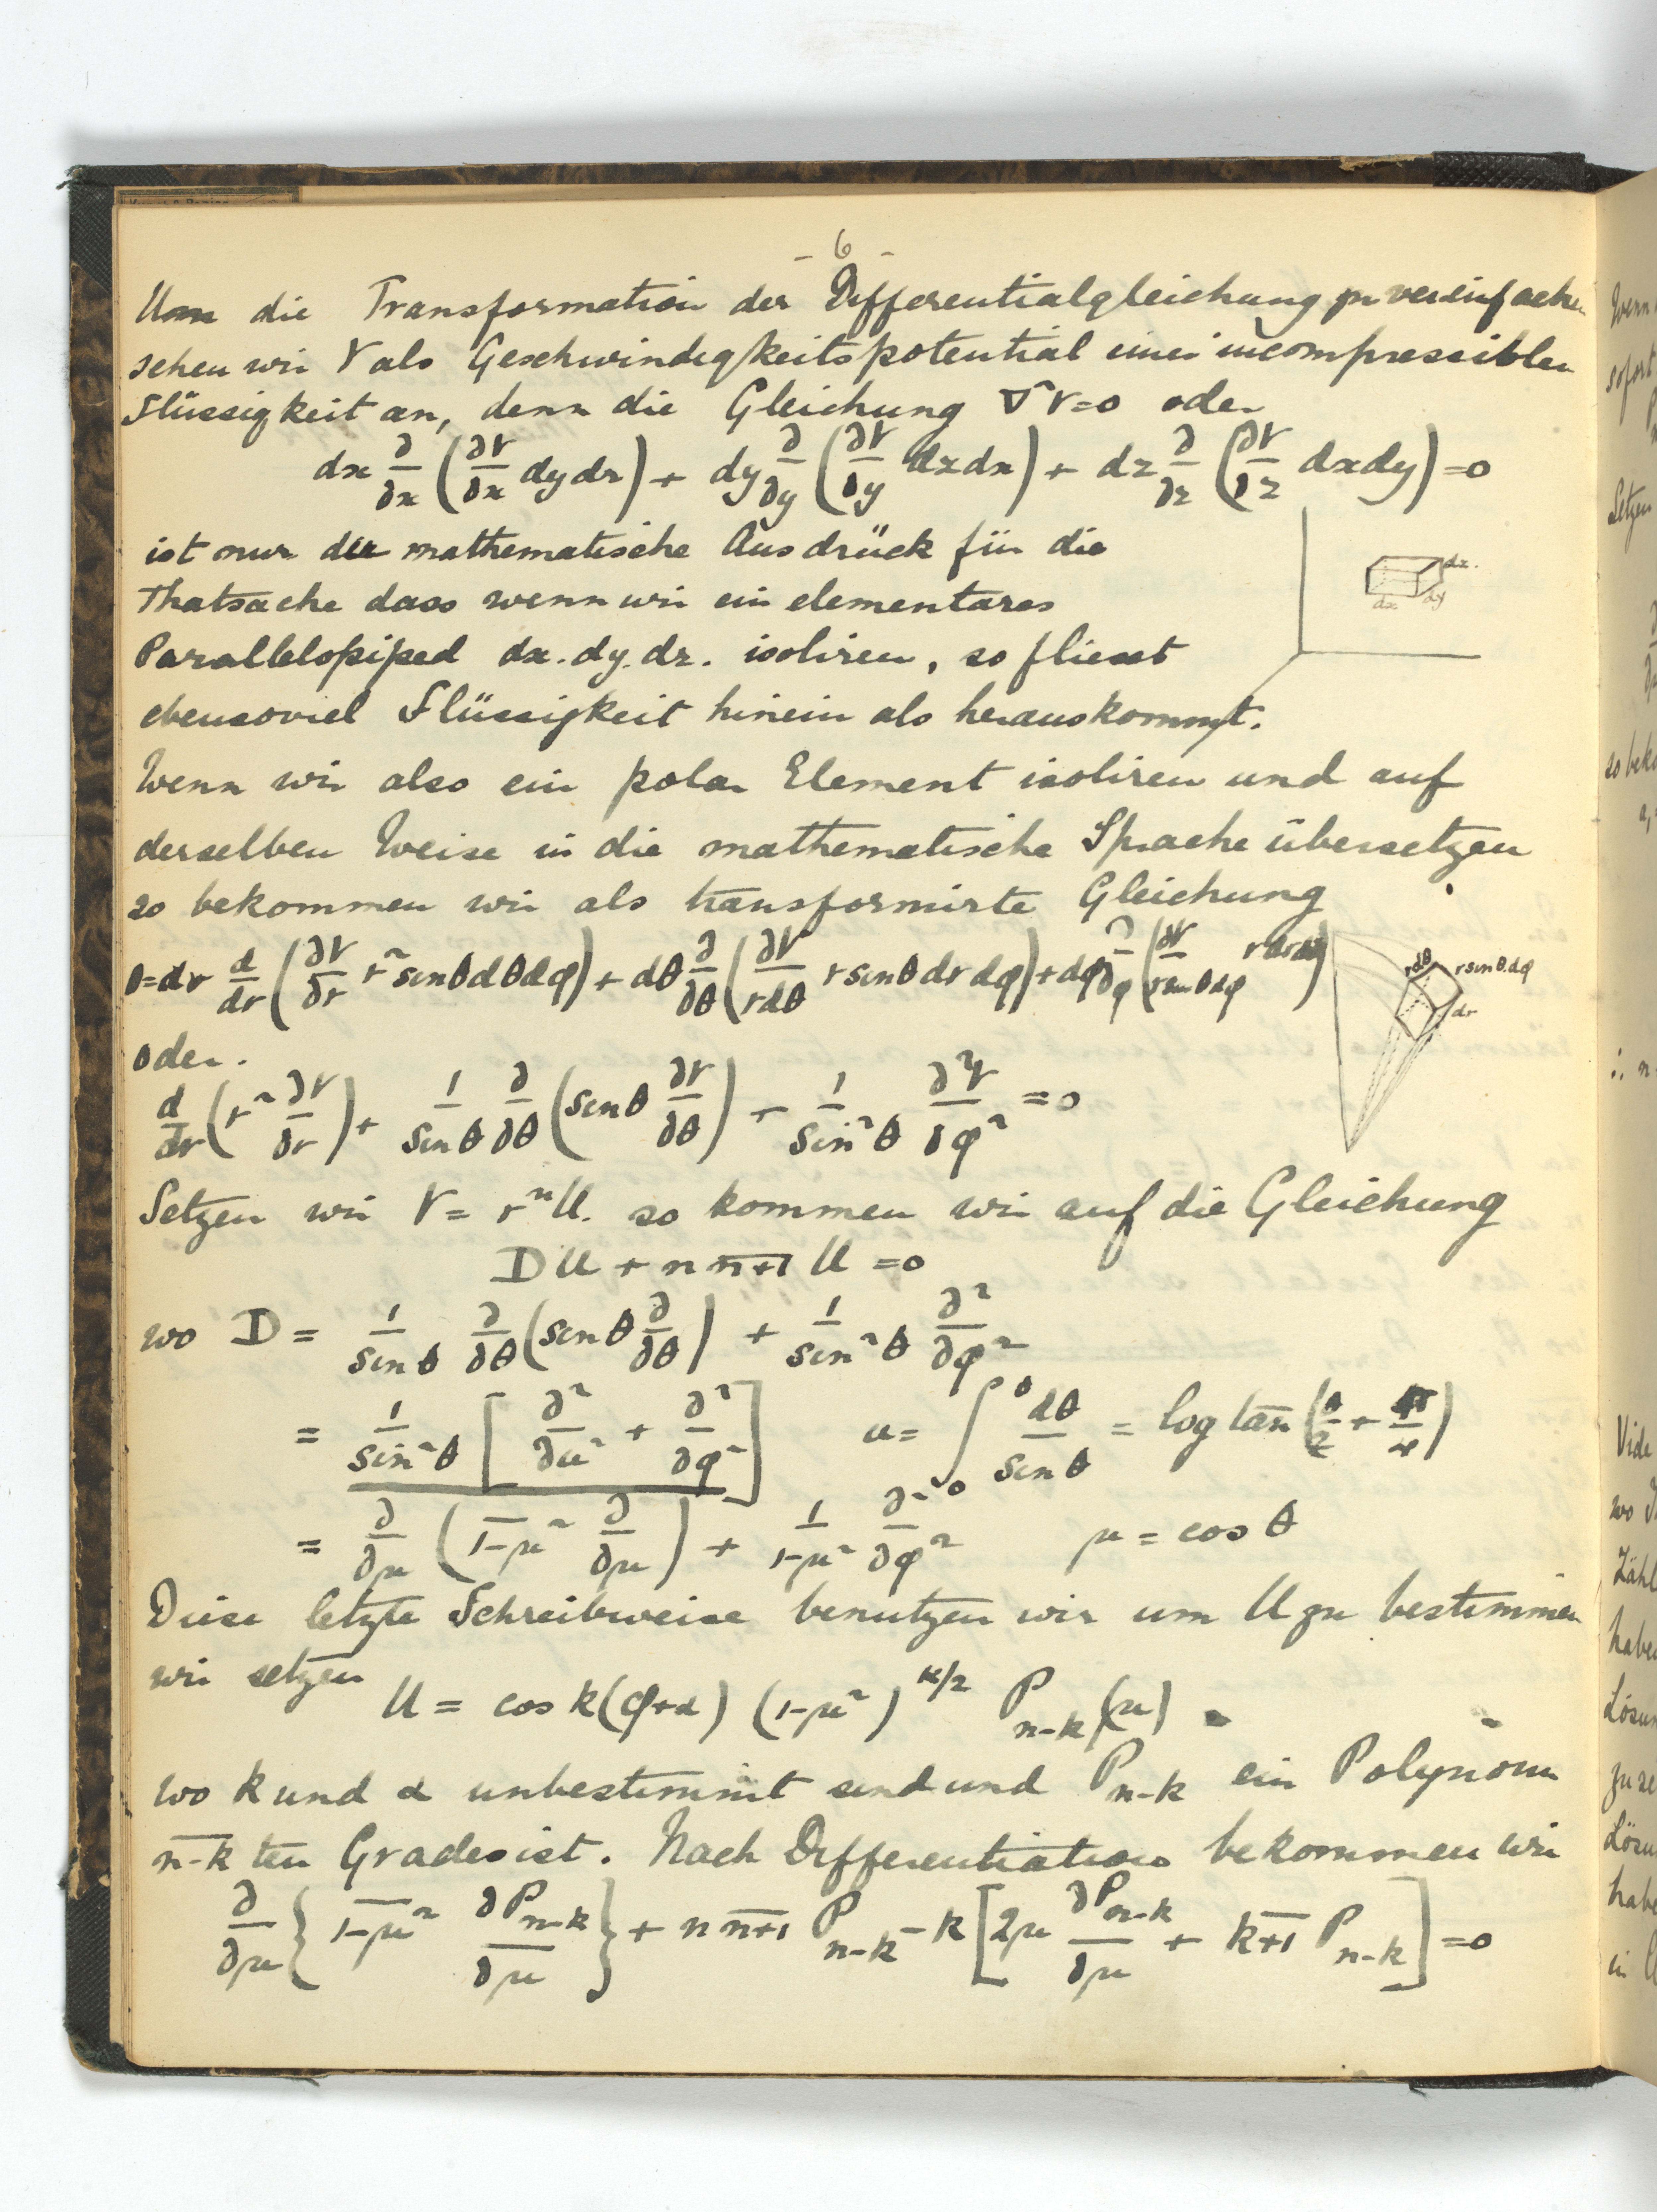 - 6 -
Um die Transformation der Differentialgleichung zu vereinfachen
sehen wir V als Geschwindigkeitspotential einer incompressiblen
Flüssigkeit an, denn die Gleichung ∇²V=0 oder
dx ∂/∂x (∂V/∂x dydz) + dy ∂/∂y (∂V/∂y dzdx) + dz ∂/∂z (∂V/∂z dxdy) = 0
ist nur der mathematische Ausdrück für die
Thatsache dass wenn wir ein elementares
dz.
dx dy
Parallelopiped dx.dy.dz. isoliren, so fliesst
ebensoviel Flüssigkeit hinein als herauskommt.
Wenn wir also ein polar Element isoliren und auf
derselben Weise in die mathematische Sprache übersetzen
so bekommen wir als transformirte Gleichung
0=dr d/dr (∂V/∂r r² sinθdθdφ) + dθ ∂/∂θ (∂V/rdθ r sinθ dr dφ) + dφ ∂/∂φ (∂V/r sinθ dφ r dr dθ)
rdθ r sinθ.dφ
dr
oder.
d/dr (r² ∂V/∂r) + 1/sinθ ∂/∂θ (sinθ ∂V/∂θ) + 1/sin²θ ∂²V/∂φ² = 0
Setzen wir V = rⁿU. so kommen wir auf die Gleichung
DU + n n+1 U = 0
wo D = 1/sinθ ∂/∂θ (sinθ ∂/∂θ) + 1/sin²θ ∂²/∂φ²
= 1/sin²θ [∂²/∂u² + ∂²/∂φ²] u = ∫₀^θ dθ/sinθ = log tan (θ/2 + π/4)
= ∂/∂μ (1-μ² ∂/∂μ) + 1/1-μ² ∂²/∂φ² μ = cos θ
Diese letzte Schreibweise benutzen wir um U zu bestimmen
wir setzen
U = cos k(φ+α) (1-μ²)^k/2 P_n-k(μ)
wo k und α unbestimmt sind und P_n-k ein Polynom
n-k ten Grades ist. Nach Differentiation bekommen wir
∂/∂μ {1-μ² ∂P_n-k/∂μ} + n n+1 P_n-k - k [2μ ∂P_n-k/∂μ + k+1 P_n-k] = 0